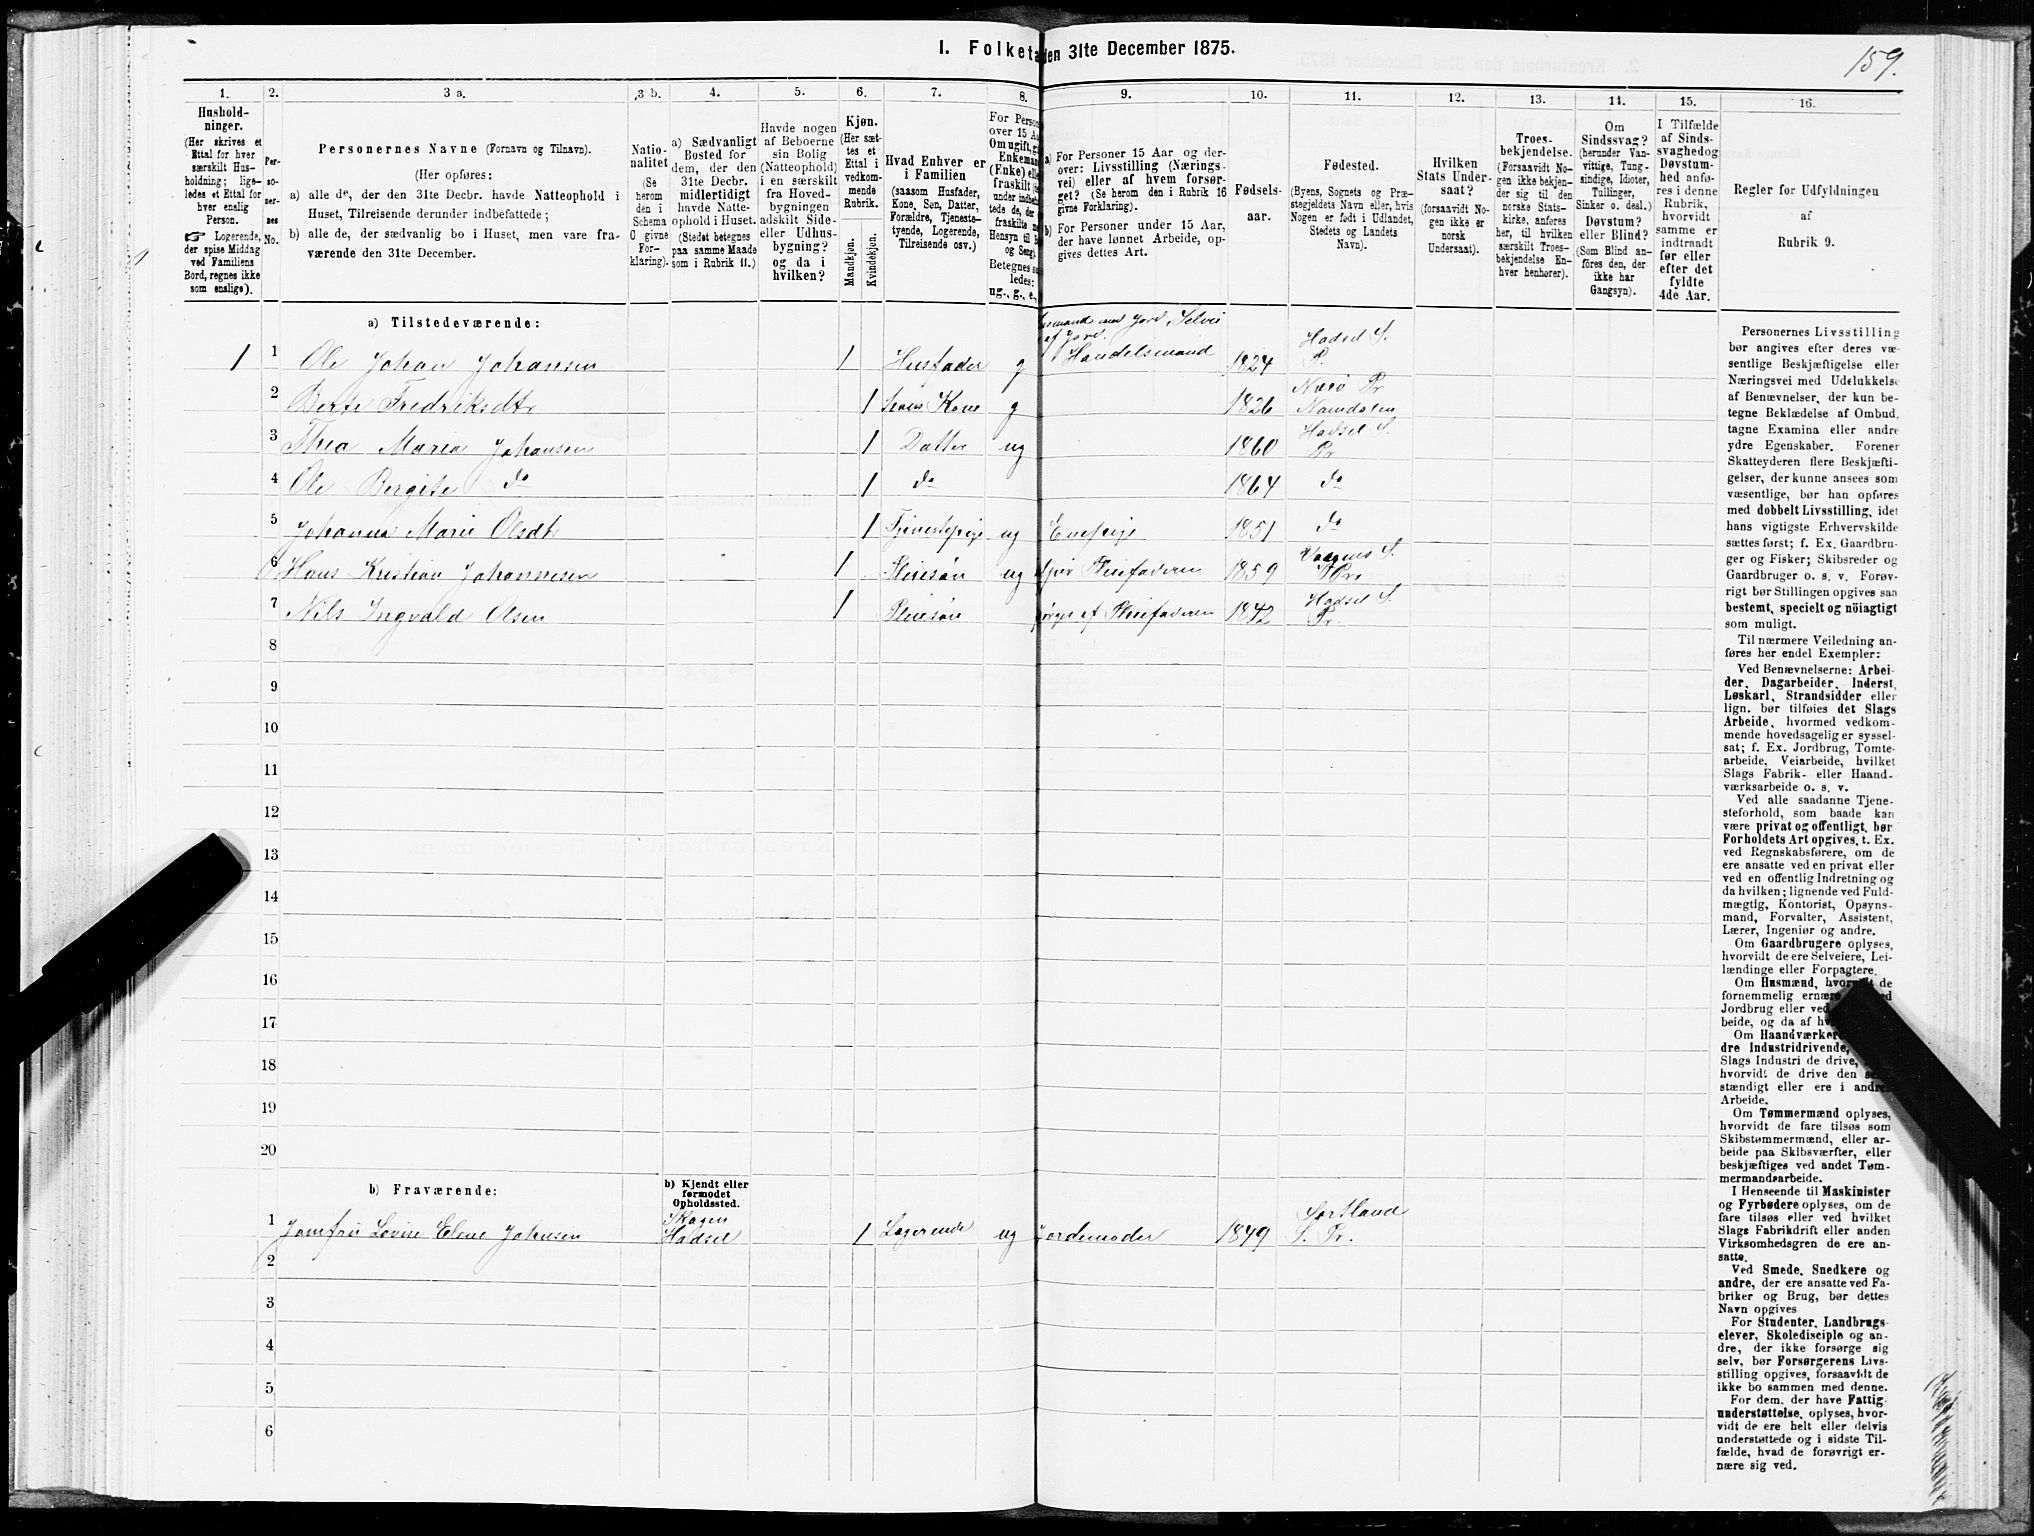 I. Folketæ
den 31te December 1875.
159.
1. 2. 3 a. 3 b. 4. 5. 6. 7. 8. 9. 10. 11. 12. 13. 14. 15. 16.
Hushold-
ninger.
(Her skrives et
Ettal for hver
særskilt Hus-
holdning; lige-
ledes et Ettal for
hver enslig
Person.
☞ Logerende,
der spise Middag
ved Familiens
Bord, regnes ikke
som enslige).
Per-
so-
ner-
nes
No.
Personernes Navne (Fornavn og Tilnavn).
(Her opføres:
a) alle de, der den 31te Decbr. havde Natteophold i
Huset, Tilreisende derunder indbefattede;
b) alle de, der sædvanlig bo i Huset, men vare fra-
værende den 31te December.
Natio-
nalitet
(Se
herom
den i
Schema
O givne
For-
klaring).
a) Sædvanligt
Bosted for
dem, der den
31te Decbr.
midlertidigt
havde Natte-
ophold i Huset.
(Stedet betegnes
paa samme Maade
som i Rubrik 11.)
Havde nogen
af Beboerne
sin Bolig
(Natteophold)
i en særskilt
fra Hoved-
bygningen
adskilt Side-
eller Udhus-
bygning?
og da i
hvilken?
Kjøn.
(Her sæt-
tes et
Ettal i
vedkom-
mende
Rubrik.
Mandkjøn.
Kvindekjøn.
Hvad Enhver er
i Familien
(saasom Husfader,
Kone, Søn, Datter,
Forældre, Tjeneste-
tyende, Logerende,
Tilreisende osv.)
For Person
over 15 Aa
Om ugift, g
Enkeman
(Enke) ell
fraskilt
under indbe
tede de, der
fraskilte
Hensyn til B
og Seng).
Betegnes s
ledes:
ug., g., e.,
a) For Personer 15 Aar og der-
over: Livsstilling (Nærings-
vei) eller af hvem forsør-
get? (Se herom den i Rubrik 16
givne Forklaring).
b) For Personer under 15 Aar,
der have lønnet Arbeide, op-
gives dettes Art.
Fødsels-
aar.
Fødested.
(Byens, Sognets og Præ-
stegjeldets Navn eller, hvis
Nogen er født i Udlandet,
Stedets og Landets
Navn).
Hvilken
Stats Under-
saat?
(forsaavidt No-
gen ikke er
norsk
Undersaat).
Troes-
bekjendelse.
(Forsaavidt No-
gen ikke bekjen-
der sig til den
norske Stats-
kirke, anføres
her, til hvilken
særskilt Troes-
bekjendelse En-
hver henhører).
Om
Sindssvag?
(herunder Van-
vittige, Tung-
sindige, Idioter,
Tullinger,
Sinker o. desl.)
Døvstum?
eller Blind?
(Som Blind an-
føres den, der
ikke har
Gangsyn).
I Tilfælde
af Sinds-
svaghed og
Døvstum-
hed anfø-
res i denne
Rubrik,
hvorvidt
samme er
indtraadt
før eller
efter det
fyldte
4de Aar.
Regler for Udfyldningen
af
Rubrik 9.
a) Tilstedeværende:
1 1 Ole Johan Johansen 1 Husfader g usmand med Jord, Selvei af Jord. Handelsmand 1824 Hadsel S. P.
2 Berte Fredriksdtr 1 hans Kone g 1826 Nærø Pr Namdalen
3 Thea Maria Johansen 1 Datter ug 1860 Hadsel S. Pr
4 Ole Bergite do 1 do 1864 do
5 Johanna Marie Olsdtr 1 Tjenestepige ug 1851 do
6 Hans Kristian Johannesen 1 Pleiesøn ug Pleiefaderen 1859 Vaagens S. Pr
7 Nils Ingvald Olsen 1 Pleiesøn af Pleiefaderen 1842 Hadsel S. Pr.
8
9
10
11
12
13
14
15
16
17
18
19
20
b) Fraværende:
b) Kjendt eller
formodet
Opholdssted.
1 Jomfru Lovise Elene Johnsen Skagen Hadsel 1 Logerende ug Jordemoder 1849 Sortland S. Pr.
2
3
4
5
6
Personernes Livsstilling
bør angives efter deres væ-
sentlige Beskjæftigelse eller
Næringsvei med Udelukkelse
af Benævnelser, der kun be-
tegne Beklædelse af Ombud,
tagne Examina eller andre
ydre Egenskaber. Forener
Skatteyderen flere Beskjæfti-
gelser, der kunne ansees som
væsentlige, bør han opføres
med dobbelt Livsstilling, idet
hans vigtigste Erhvervskilde
sættes først; f. Ex. Gaardbru-
ger og Fisker; Skibsreder og
Gaardbruger o. s. v. Forøv-
rigt bør Stillingen opgives saa
bestemt, specielt og nöiagtigt
som muligt.
Til nærmere Veiledning an-
føres her endel Exempler:
Ved Benævnelserne: Arbei-
der, Dagarbeider, Inderst,
Løskarl, Strandsidder eller
lign. bør tilføies det Slags
Arbeide, hvormed vedkom-
mende hovedsagelig er syssel-
sat; f. Ex. Jordbrug, Tomte-
arbeide, Veiarbeide, hvilket
Slags Fabrik- eller Haand-
værksarbeide o. s. v.
Ved alle saadanne Tjene-
steforhold, som baade kan
være privat og offentligt, bør
Forholdets Art opgives, t. Ex.
ved Regnskabsførere, om de
ere ansatte ved en privat eller
ved en offentlig Indretning og
da hvilken; lignende ved Fuld-
mægtig, Kontorist, Opsyns-
mand, Forvalter, Assistent,
Lærer, Ingeniør og andre.
Om Gaardbrugere oplyses,
hvorvidt de ere Selveiere, Lei-
lændinge eller Forpagtere.
Om Husmænd, de
fornemmelig
Jordbrug eller ved
beide, og da af
Om Haandværkere
dre Industridrivende,
Slags Industri de drive,
hvorvidt de drive den
stændigt eller ere i andres
Arbeide.
Om Tømmermænd oplyses,
hvorvidt de fare tilsøs som
Skibstømmermænd, eller ar-
beide paa Skibsværfter, eller
beskjæftiges ved andet Tøm-
mermandsarbeide.
I Henseende til Maskinister
og Fyrbødere oplyses, om de
fare tilsøs eller ved hvilket
Slags Fabrikdrift eller anden
Virksomhedsgren de ere an-
satte.
Ved Smede, Snedkere og
andre, der ere ansatte ved Fa-
briker og Brug, bør dettes
Navn opgives
For Studenter, Landbrugs-
elever, Skoledisciple og an-
dre, der ikke forsørge sig
selv, bør Forsørgerens Livs-
stilling opgives, forsaavidt de
ikke bo sammen med denne.
For dem, der have Fattig-
understøttelse, oplyses, hvor-
vidt de ere helt eller delvis
understøttede og i sidste Til-
fælde, hvad de forøvrigt er-
nære sig ved.